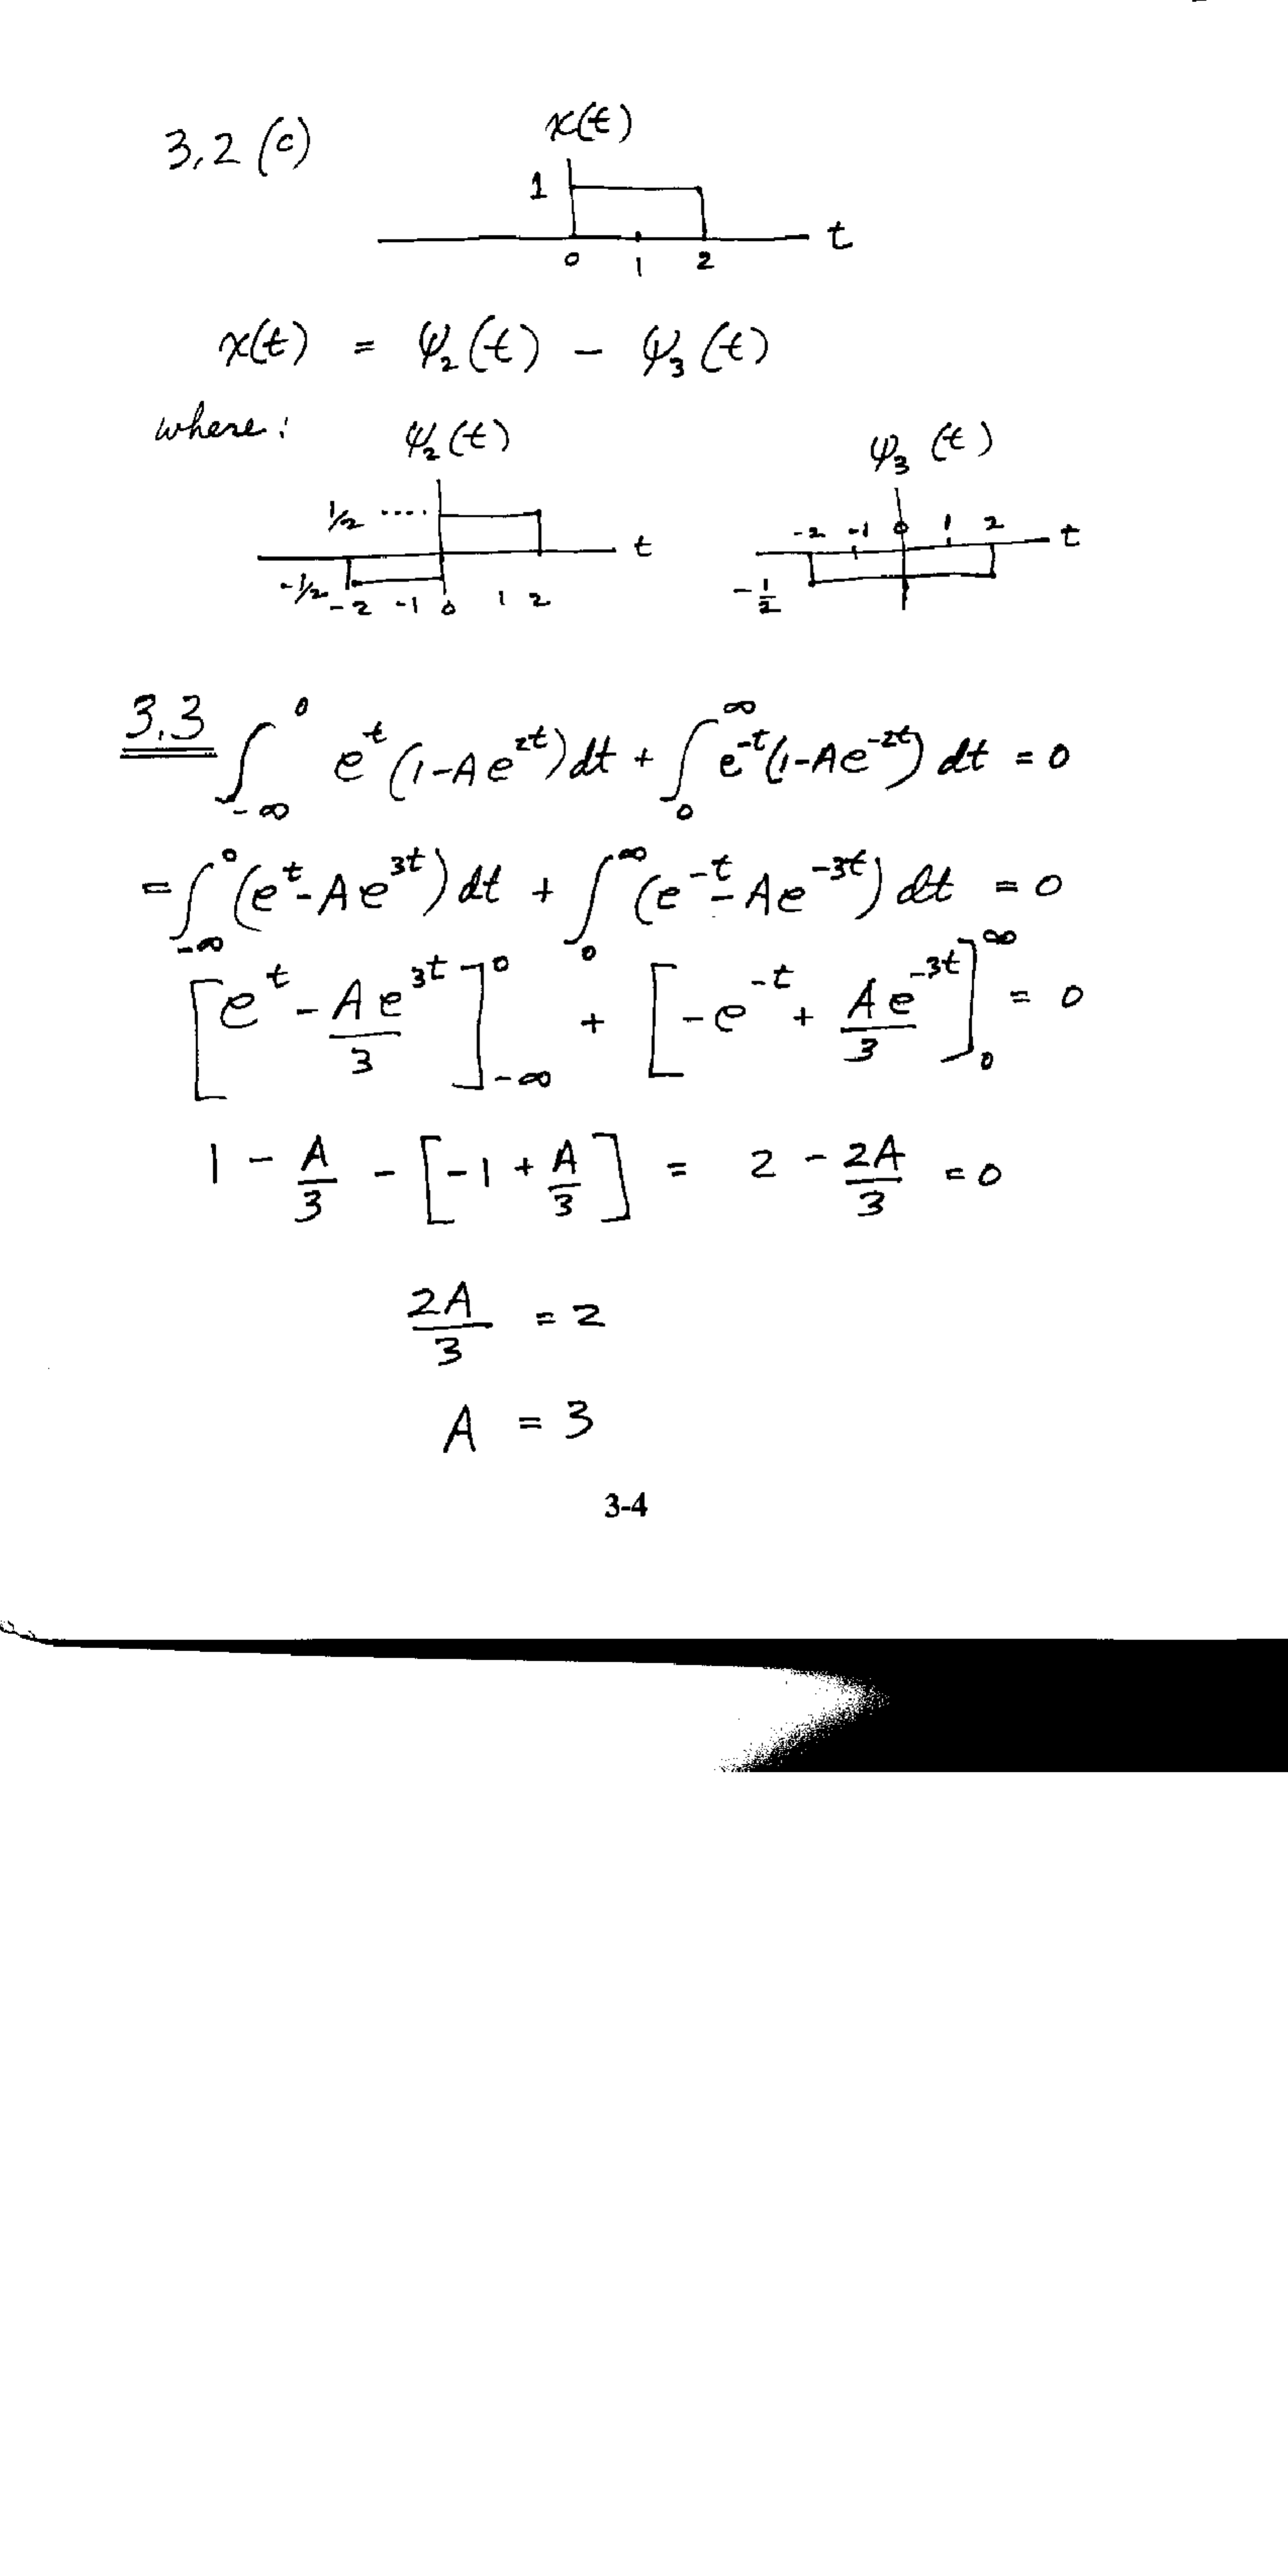 3.2 (c)
x(t)
1
t
0 1 2
x(t) = ψ₂(t) - ψ₃(t)
where:
ψ₂(t) ψ₃(t)
1/2 .... t
-1/2 -2 -1 0 1 2
-2 -1 0 1 2 t
-1/2
3.3 ∫_{-∞}^{0} e^{t}(1-Ae^{2t})dt + ∫_{0}^{∞} e^{-t}(1-Ae^{-2t}) dt = 0
= ∫_{-∞}^{0} (e^{t}-Ae^{3t})dt + ∫_{0}^{∞} (e^{-t}-Ae^{-3t}) dt = 0
[e^{t} - Ae^{3t}/3]_{-∞}^{0} + [-e^{-t} + Ae^{-3t}/3]_{0}^{∞} = 0
1 - A/3 - [-1 + A/3] = 2 - 2A/3 = 0
2A/3 = 2
A = 3
3-4